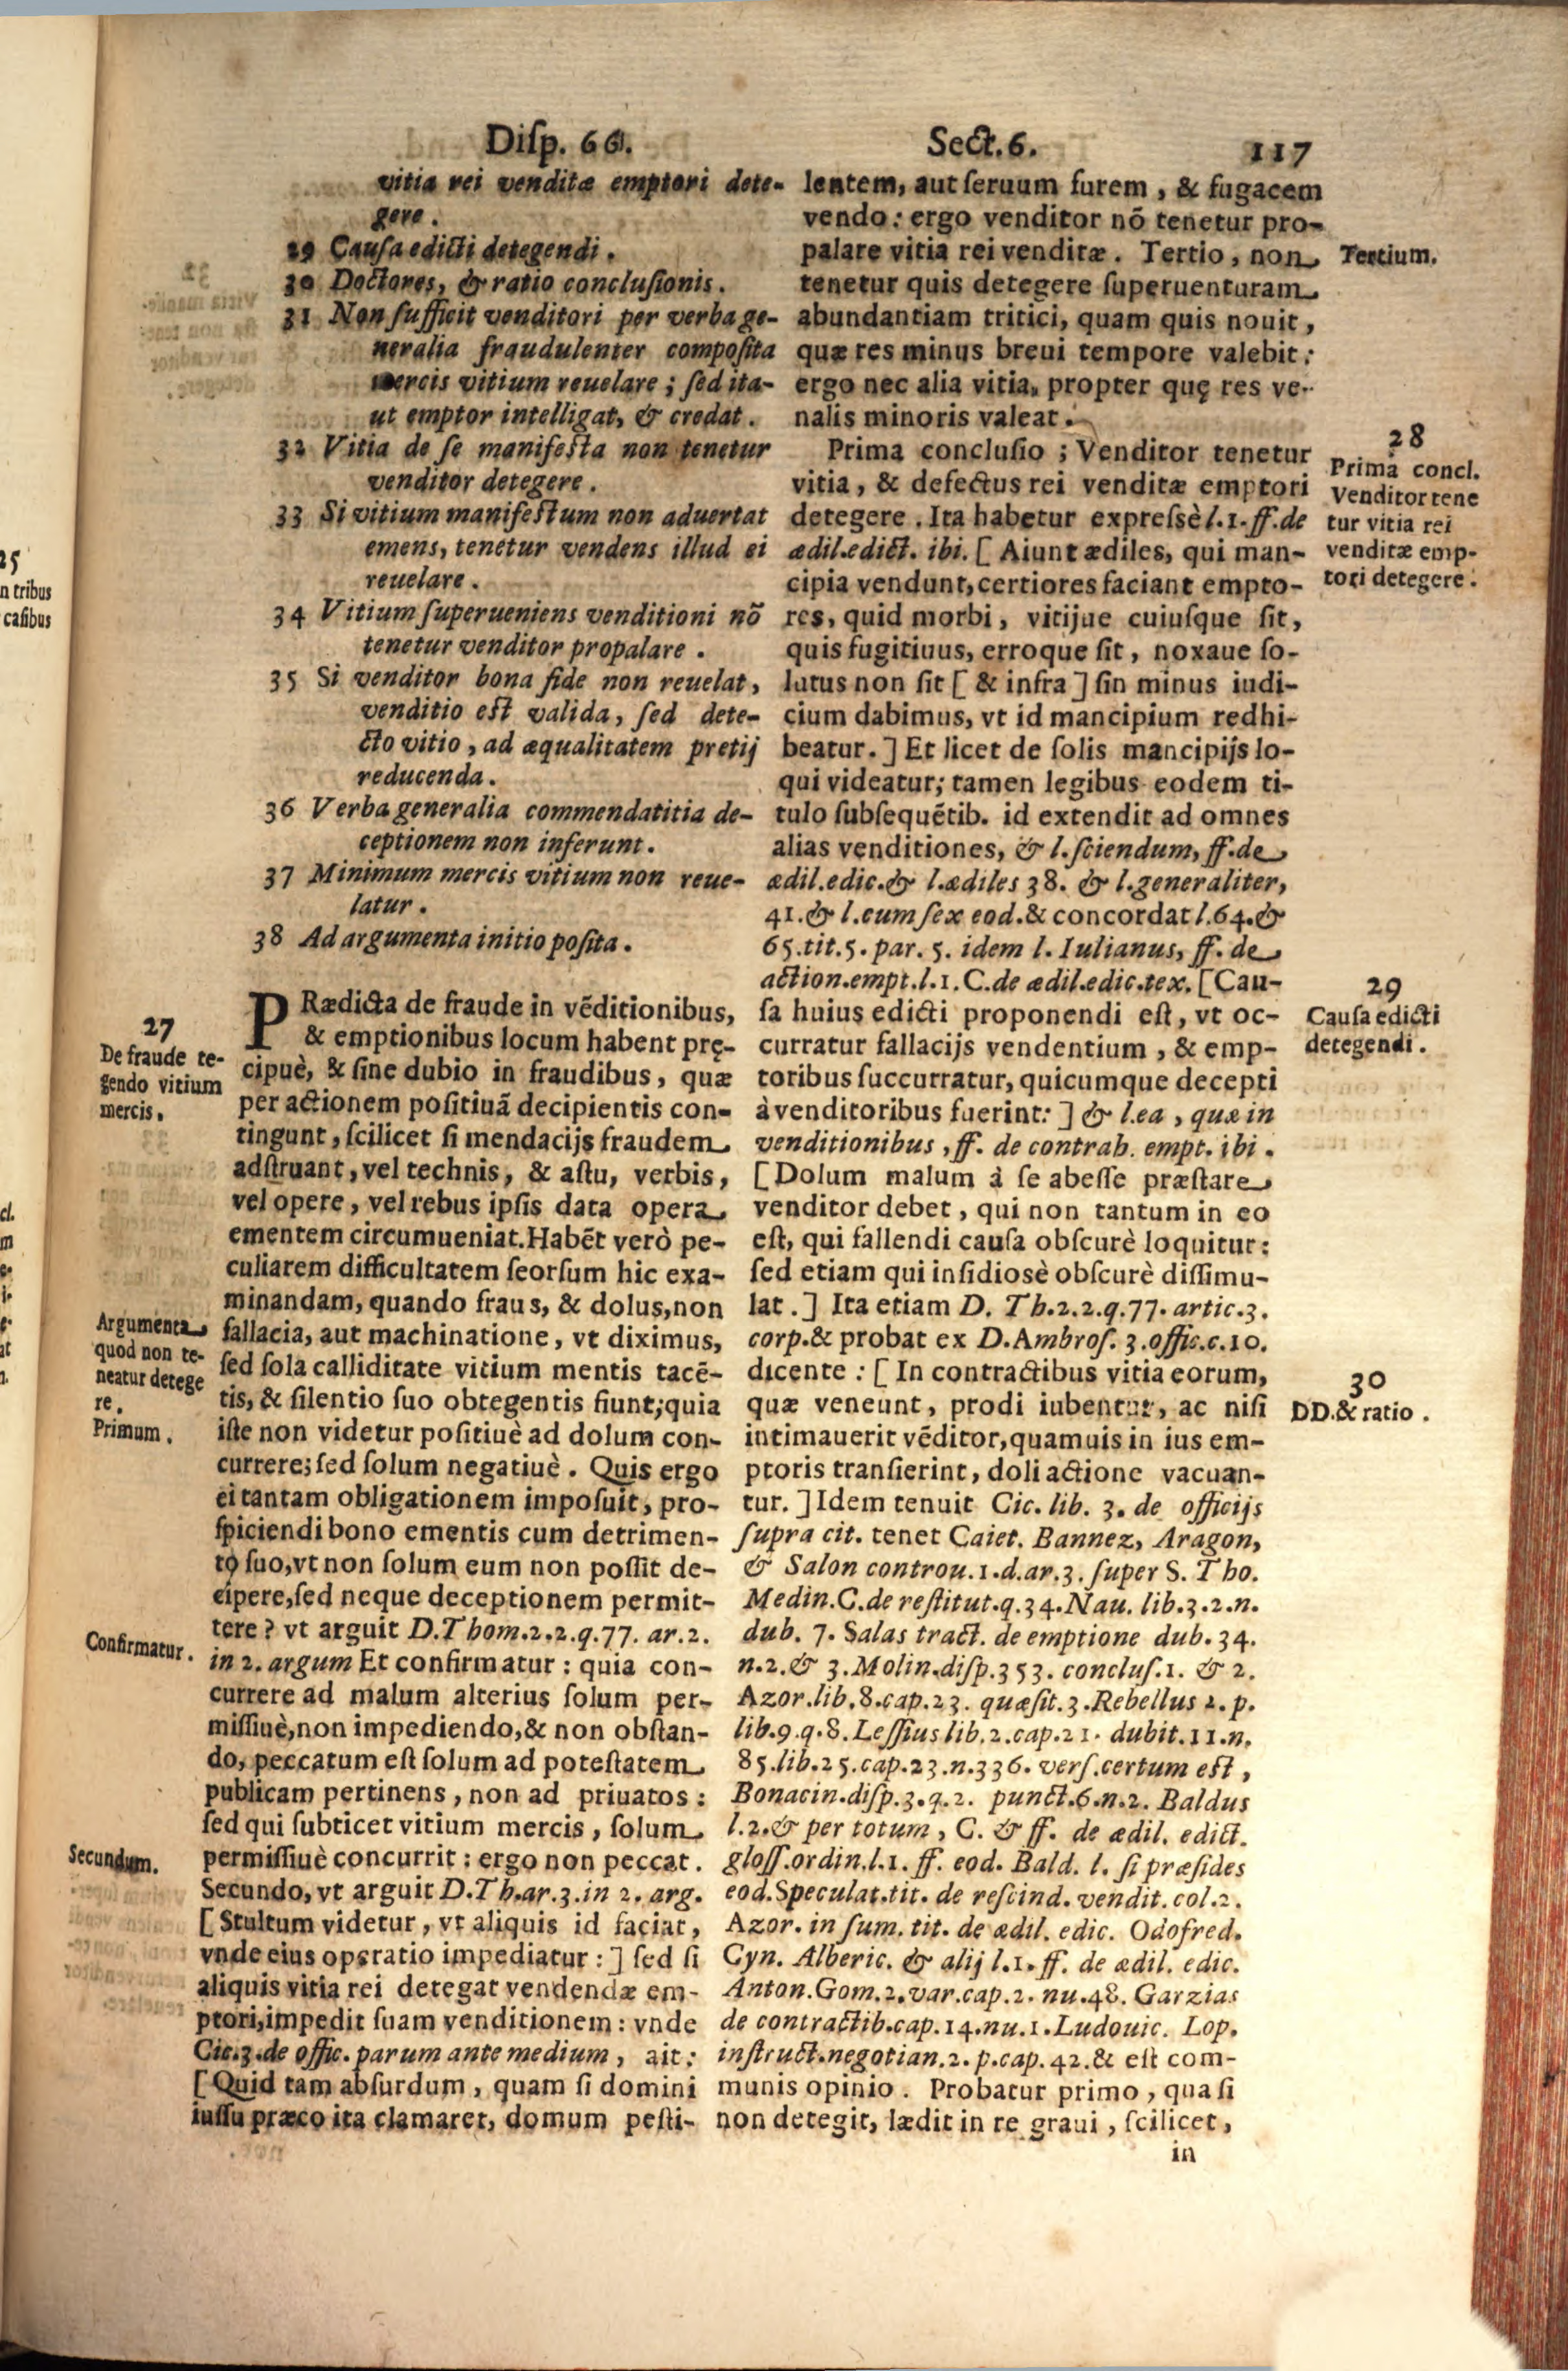 Disp. 66. Sect. 6. 117
vitia rei venditæ emptori dete-
gere.
29 Causa edicti detegendi.
30 Doctores, & ratio conclusionis.
31 Non sufficit venditori per verba ge-
neralia fraudulenter composita
mercis vitium reuelare; sed ita-
ut emptor intelligat, & credat.
32 Vitia de se manifesta non tenetur
venditor detegere.
33 Si vitium manifestum non aduertat
emens, tenetur vendens illud ei
reuelare.
34 Vitium superueniens venditioni nõ
tenetur venditor propalare.
35 Si venditor bona fide non reuelat,
venditio est valida, sed dete-
cto vitio, ad æqualitatem pretij
reducenda.
36 Verba generalia commendatitia de-
ceptionem non inferunt.
37 Minimum mercis vitium non reue-
latur.
38 Ad argumenta initio posita.
27
De fraude te-
gendo vitium
mercis.
PRædicta de fraude in vẽditionibus,
& emptionibus locum habent prę-
cipuè, & sine dubio in fraudibus, quæ
per actionem positiuã decipientis con-
tingunt, scilicet si mendacijs fraudem
adstruant, vel technis, & astu, verbis,
vel opere, vel rebus ipsis data opera
ementem circumueniat. Habẽt verò pe-
culiarem difficultatem seorsum hic exa-
minandam, quando fraus, & dolus, non
fallacia, aut machinatione, vt diximus,
sed sola calliditate vitium mentis tacẽ-
tis, & silentio suo obtegentis fiunt; quia
iste non videtur positiuè ad dolum con-
currere; sed solum negatiuè. Quis ergo
ei tantam obligationem imposuit, pro-
spiciendi bono ementis cum detrimen-
to suo, vt non solum eum non possit de-
cipere, sed neque deceptionem permit-
tere? vt arguit D. Thom. 2. 2. q. 77. ar. 2.
in 2. argum Et confirmatur: quia con-
currere ad malum alterius solum per-
missiuè, non impediendo, & non obstan-
do, peccatum est solum ad potestatem
publicam pertinens, non ad priuatos:
sed qui subticet vitium mercis, solum
permissiuè concurrit: ergo non peccat.
Secundo, vt arguit D. Th. ar. 3. in 2. arg.
[Stultum videtur, vt aliquis id faciat,
vnde eius operatio impediatur:] sed si
aliquis vitia rei detegat vendendæ em-
ptori, impedit suam venditionem: vnde
Cic. 3. de offic. parum ante medium, ait:
[Quid tam absurdum, quam si domini
iussu præco ita clamaret, domum pesti-
Argumenta
quod non te-
neatur detege
re.
Primum.
Confirmatur.
Secundum.
lentem, aut seruum furem, & fugacem
vendo: ergo venditor nõ tenetur pro-
palare vitia rei venditæ. Tertio, non
tenetur quis detegere superuenturam
abundantiam tritici, quam quis nouit,
quæ res minus breui tempore valebit:
ergo nec alia vitia, propter quę res ve-
nalis minoris valeat.
Prima conclusio; Venditor tenetur
vitia, & defectus rei venditæ emptori
detegere. Ita habetur expressè l. 1. ff. de
ædil. edict. ibi. [Aiunt ædiles, qui man-
cipia vendunt, certiores faciant empto-
res, quid morbi, vitijue cuiusque sit,
quis fugitiuus, erroque sit, noxaue so-
lutus non sit [& infra] sin minus iudi-
cium dabimus, vt id mancipium redhi-
beatur.] Et licet de solis mancipijs lo-
qui videatur; tamen legibus eodem ti-
tulo subsequẽtib. id extendit ad omnes
alias venditiones, & l. sciendum, ff. de
ædil. edic. & l. ædiles 38. & l. generaliter,
41. & l. cum sex eod. & concordat l. 64. &
65. tit. 5. par. 5. idem l. Iulianus, ff. de
action. empt. l. 1. C. de ædil. edic. tex. [Cau-
sa huius edicti proponendi est, vt oc-
curratur fallacijs vendentium, & emp-
toribus succurratur, quicumque decepti
à venditoribus fuerint:] & l. ea, quæ in
venditionibus, ff. de contrah. empt. ibi.
[Dolum malum à se abesse præstare
venditor debet, qui non tantum in eo
est, qui fallendi causa obscurè loquitur:
sed etiam qui insidiosè obscurè dissimu-
lat.] Ita etiam D. Th. 2. 2. q. 77. artic. 3.
corp. & probat ex D. Ambros. 3. offic. c. 10.
dicente: [In contractibus vitia eorum,
quæ veneunt, prodi iubentur, ac nisi
intimauerit vẽditor, quamuis in ius em-
ptoris transierint, doli actione vacuan-
tur.] Idem tenuit Cic. lib. 3. de officijs
supra cit. tenet Caiet. Bannez, Aragon,
& Salon controu. 1. d. ar. 3. super S. Tho.
Medin. C. de restitut. q. 34. Nau. lib. 3. 2. n.
dub. 7. Salas tract. de emptione dub. 34.
n. 2. & 3. Molin. disp. 353. conclus. 1. & 2.
Azor. lib. 8. cap. 23. quæsit. 3. Rebellus 2. p.
lib. 9. q. 8. Lessius lib. 2. cap. 21. dubit. 11. n.
85. lib. 25. cap. 23. n. 336. vers. certum est,
Bonacin. disp. 3. q. 2. punct. 6. n. 2. Baldus
l. 2. & per totum, C. & ff. de ædil. edict.
gloss. ordin. l. 1. ff. eod. Bald. l. si præsides
eod. Speculat. tit. de rescind. vendit. col. 2.
Azor. in sum. tit. de ædil. edic. Odofred.
Cyn. Alberic. & alij l. 1. ff. de ædil. edic.
Anton. Gom. 2. var. cap. 2. nu. 48. Garzias
de contractib. cap. 14. nu. 1. Ludouic. Lop.
instruct. negotian. 2. p. cap. 42. & est com-
munis opinio. Probatur primo, qua si
non detegit, lædit in re graui, scilicet,
in
Tertium.
28
Prima concl.
Venditor tene
tur vitia rei
venditæ emp-
tori detegere.
29
Causa edicti
detegendi.
30
DD. & ratio.
25
n tribus
casibus